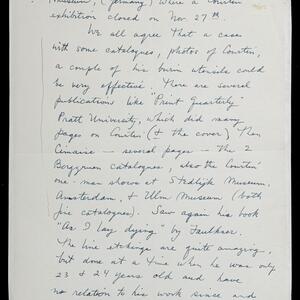 Museum, Germany) where a Courtin
exhibition closed on Nov. 27th
We all agree that a case
with some catalogues, photos of Courtin,
a couple of his burin utensils could
be very effective. There are several
publications like "Print Quarterly"
Pratt University, which did many
pages on Courtin (& the cover) Then
Cimaise — several pages — the 2
Berggruen catalogues, also the Courtin
one-man shows at Stedlijk Museum,
Amsterdam, & Ulm Museum (both
fine catalogues). Saw again his book
"As I lay dying" by Faulkner.
The line etchings are quite amazing,
but done at a time when he was only
23 & 24 years old and have
no relation to his work since and